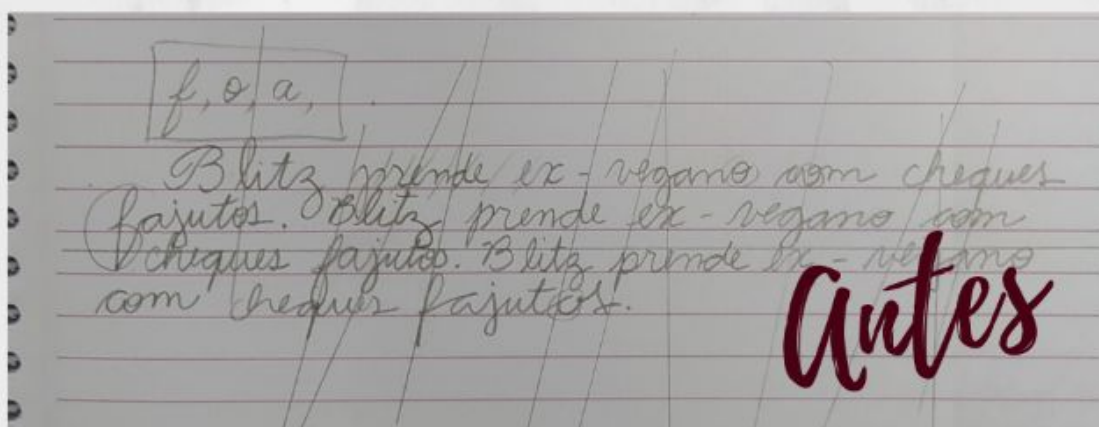 f, o, a,
Blitz prende ex-vegano com cheques
fajutos. Blitz prende ex-vegano com
cheques fajutos. Blitz prende ex-vegano
com cheques fajutos.
antes